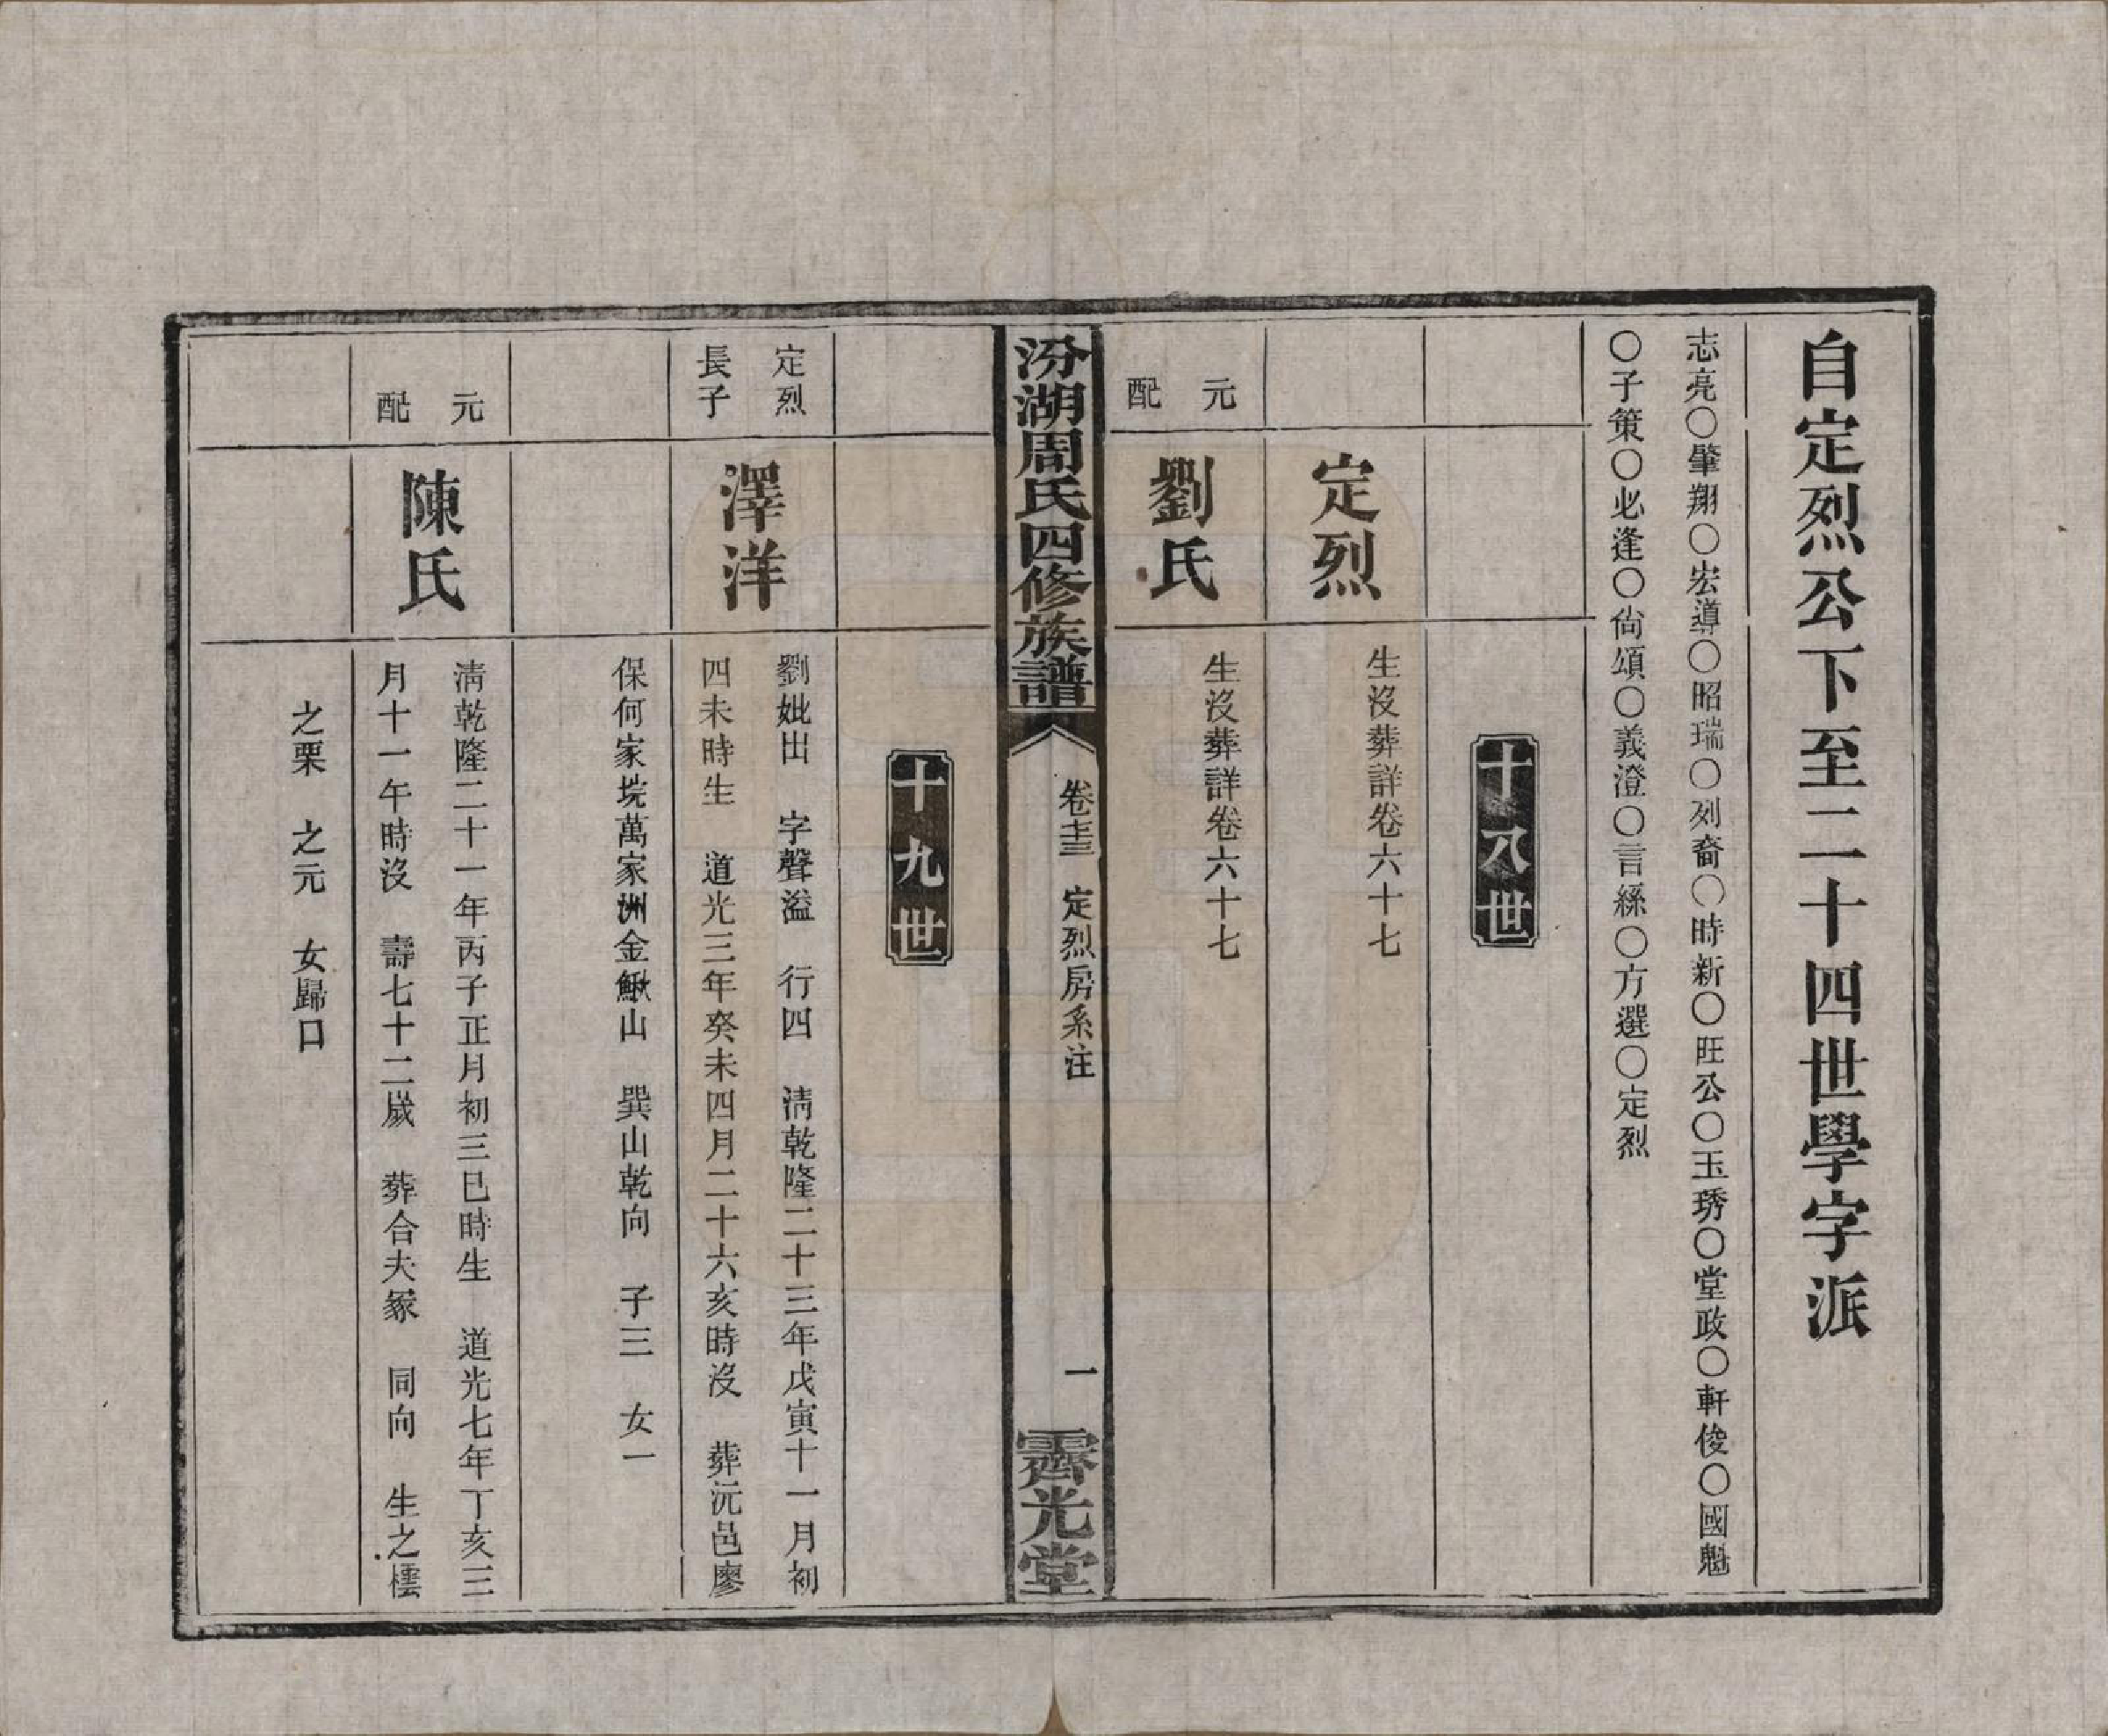 自定烈公下至二十四世學字派
志亮〇肇翔〇宏導〇昭瑞〇列裔〇時新〇旺公〇玉琇〇堂政〇軒俊〇國魁
〇子策〇必逢〇尙頌〇義澄〇言絲〇方選〇定烈
十八世
定烈
生沒葬詳卷六十七
元
配
劉氏
生沒葬詳卷六十七
汾湖周氏四修族譜
卷 定烈房系注
一
霽光堂
十九世
定烈
長子
澤洋
劉妣出 字聲溢 行四 淸乾隆二十三年戊寅十一月初
四未時生 道光三年癸未四月二十六亥時沒 葬沅邑廖
保何家垸萬家洲金鰍山 巽山乾向 子三 女一
元
配
陳氏
淸乾隆二十一年丙子正月初三巳時生 道光七年丁亥三
月十一午時沒 壽七十二歲 葬合夫冢 同向 生之橒
之栗 之元 女歸口